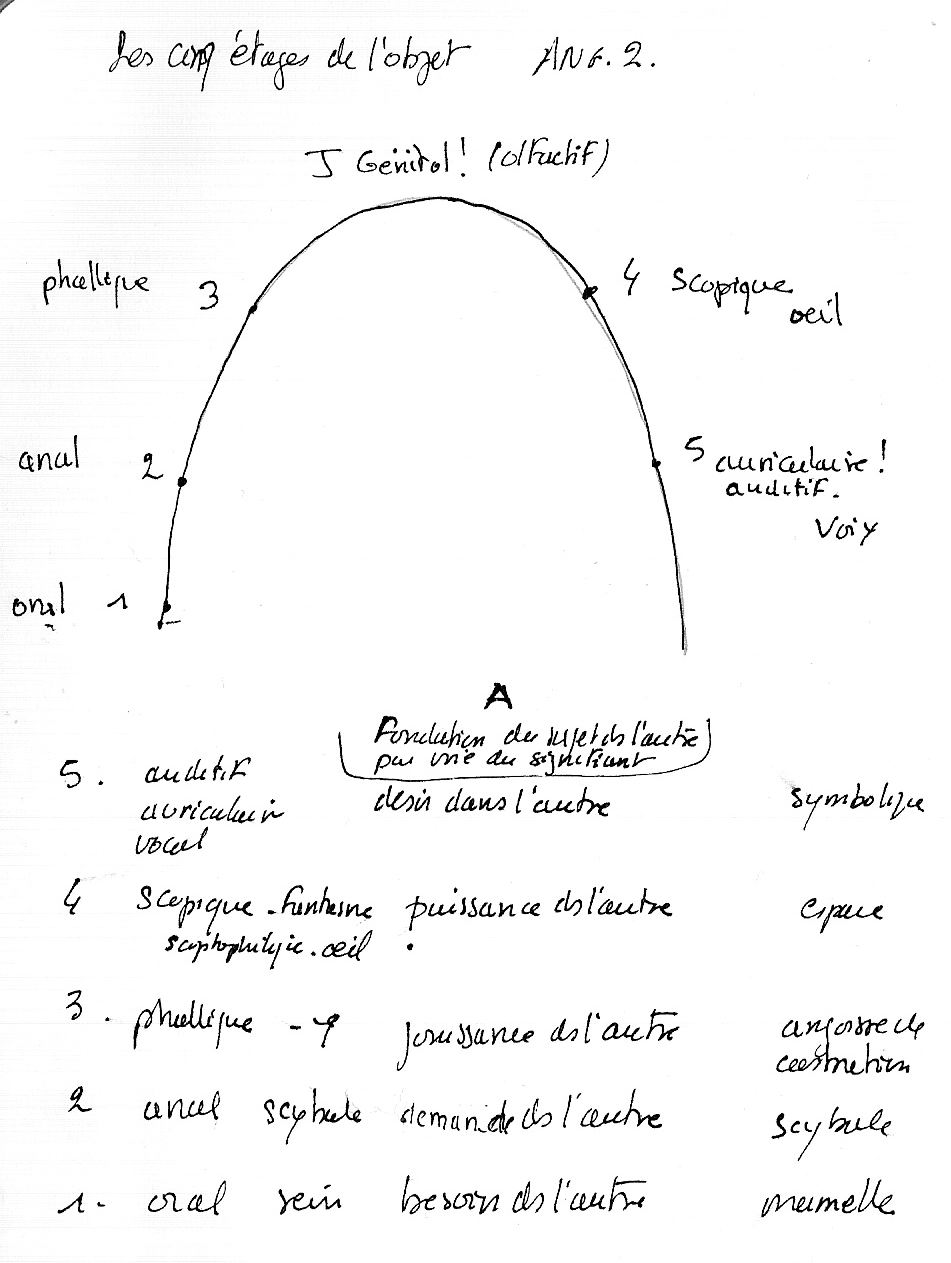 Les cinq étages de l'objet ANG. 2.
J Génital! (olfactif)
phallique 3
4 scopique
oeil
anal 2
5 auriculaire!
auditif.
Voix
oral 1
A
Fondation du sujet ds l'autre
par voie du signifiant
5. auditif
auriculair
vocal
désir dans l'autre symbolique
4 Scopique - fantasme puissance ds l'autre espace
scoptophilique. oeil
3. phallique -φ jouissance ds l'autre angoisse de
castration
2 anal scybale demande ds l'autre scybale
1. oral sein besoin ds l'autre mamelle